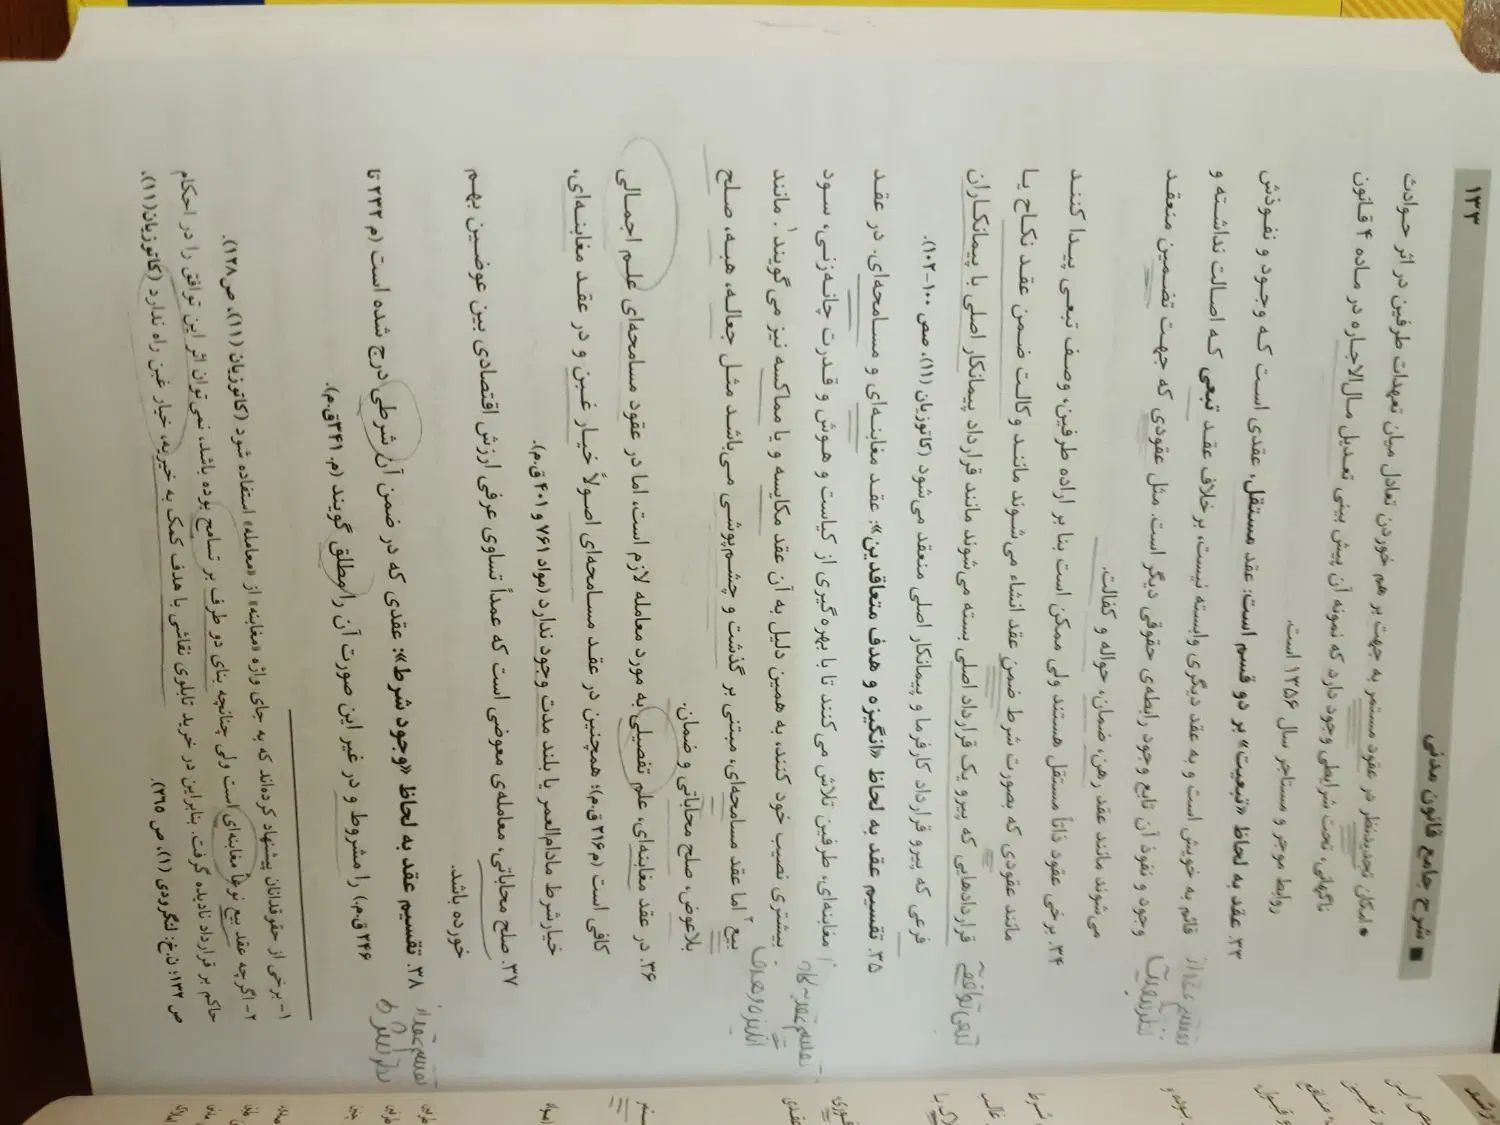 ■ شرح جامع قانون مدنی
۱۳۳
● امکان تجدیدنظر در عقود مستمر به جهت بر هم خوردن تعادل میان تعهدات طرفین در اثر حوادث
ناگهانی، تحت شرایطی وجود دارد که نمونه آن پیش بینی تعدیل مال‌الاجاره در ماده ۴ قانون
روابط موجر و مستاجر سال ۱۳۵۶ است.
۳۳. عقد به لحاظ «تبعیت» بر دو قسم است: عقد مستقل، عقدی است که وجود و نفوذش
قائم به خویش است و به عقد دیگری وابسته نیست، برخلاف عقد تبعی که اصالت نداشته و
وجود و نفوذ آن تابع وجود رابطه‌ی حقوقی دیگر است. مثل عقودی که جهت تضمین منعقد
می‌شوند مانند عقد رهن، ضمان، حواله و کفالت.
۳۴. برخی عقود ذاتاً مستقل هستند ولی ممکن است بنا بر اراده طرفین، وصف تبعی پیدا کنند
مانند عقودی که بصورت شرط ضمن عقد انشاء می‌شوند مانند وکالت ضمن عقد نکاح یا
قراردادهایی که پیرو یک قرارداد اصلی بسته می‌شوند مانند قرارداد پیمانکار اصلی با پیمانکاران
فرعی که پیرو قرارداد کارفرما و پیمانکار اصلی منعقد می‌شود (کاتوزیان (۱۱)، صص ۱۰۰-۱۰۲).
۳۵. تقسیم عقد به لحاظ «انگیزه و هدف متعاقدین»: عقد مغابنه‌ای و مسامحه‌ای. در عقد
مغابنه‌ای، طرفین تلاش می‌کنند تا با بهره‌گیری از کیاست و هوش و قدرت چانه‌زنی، سود
بیشتری نصیب خود کنند، به همین دلیل به آن عقد مکایسه و یا مماکسه نیز می‌گویند۱. مانند
بیع۲ اما عقد مسامحه‌ای، مبتنی بر گذشت و چشم‌پوشی می‌باشد مثل جعاله، هبه، صلح
بلاعوض، صلح محاباتی و ضمان.
۳۶. در عقد مغابنه‌ای، علم تفصیلی به مورد معامله لازم است، اما در عقود مسامحه‌ای علم اجمالی
کافی است (م ۲۱۶ ق.م)؛ همچنین در عقد مسامحه‌ای اصولاً خیار غبن و در عقد مغابنه‌ای،
خیارشرط مادام‌العمر یا بلند مدت وجود ندارد (مواد ۷۶۱ و ۴۰۱ ق.م).
۳۷. صلح محاباتی، معامله‌ی معوضی است که عمداً تساوی عرفی ارزش اقتصادی بین عوضین بهم
خورده باشد.
۳۸. تقسیم عقد به لحاظ «وجود شرط»: عقدی که در ضمن آن شرطی درج شده است (م ۲۳۲ تا
۲۴۶ ق.م) را مشروط و در غیر این صورت آن را مطلق گویند (م. ۳۴۱ق.م).
۱- برخی از حقوقدانان پیشنهاد کرده‌اند که به جای واژه «مغابنه» از «معامله» استفاده شود (کاتوزیان (۱۱)، ص۱۲۸).
۲- اگرچه عقد بیع نوعاً مغابنه‌ای است ولی چنانچه بنای دو طرف بر تسامح بوده باشد، نمی‌توان اثر این توافق را در احکام
حاکم بر قرارداد نادیده گرفت. بنابراین در خرید تابلوی نقاشی با هدف کمک به خیریه، خیار غبن راه ندارد (کاتوزیان(۱۱)،
ص ۱۳۲؛ ن.خ: لنگرودی (۱)، ص ۲۶۵).
تقسیم عقد از
نظر تبعیت
تبعی توافقی
تقسیم عقد به لحاظ
انگیزه و هدف
تقسیم عقد از
نظر شرط